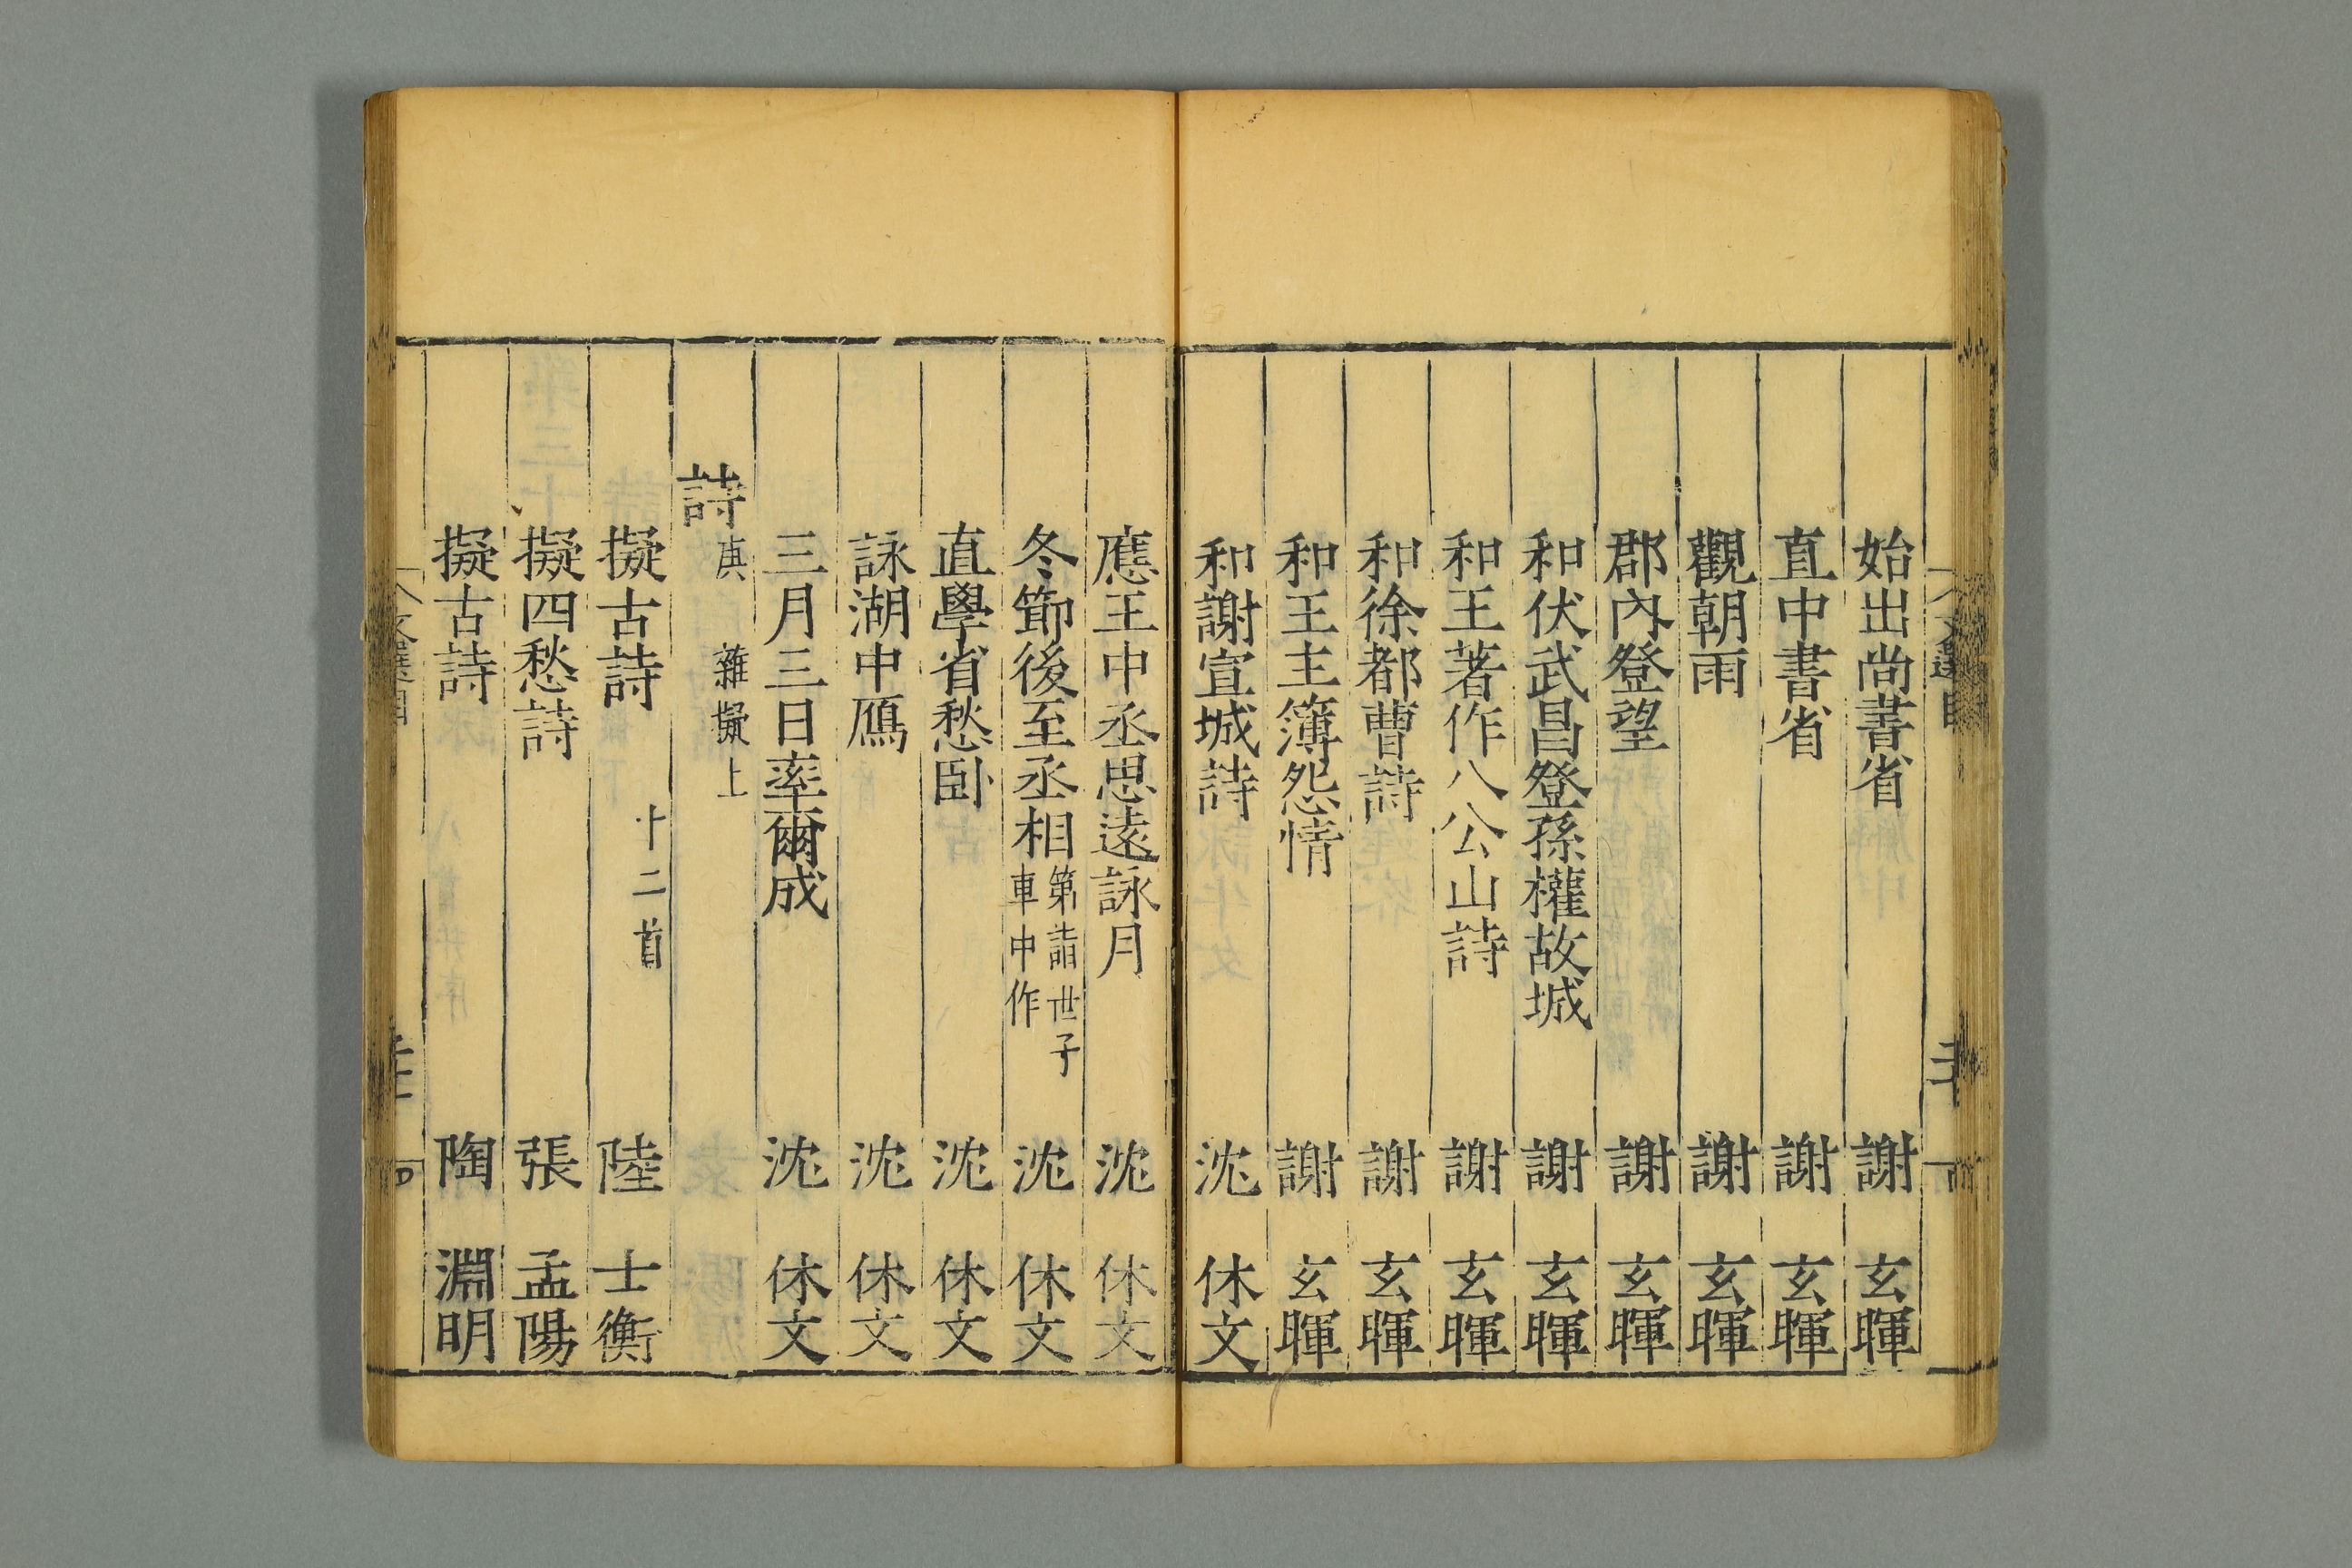 始出尚書省 謝玄暉
直中書省 謝玄暉
觀朝雨 謝玄暉
郡內登望 謝玄暉
和伏武昌登孫權故城 謝玄暉
和王著作八公山詩 謝玄暉
和徐都曹詩 謝玄暉
和王主簿怨情 謝玄暉
和謝宣城詩 沈休文
應王中丞思遠詠月 沈休文
冬節後至丞相第詣世子車中作 沈休文
直學省愁臥 沈休文
詠湖中鴈 沈休文
三月三日率爾成 沈休文
詩庚 雜擬上
擬古詩 十二首 陸士衡
擬四愁詩 張孟陽
擬古詩 陶淵明